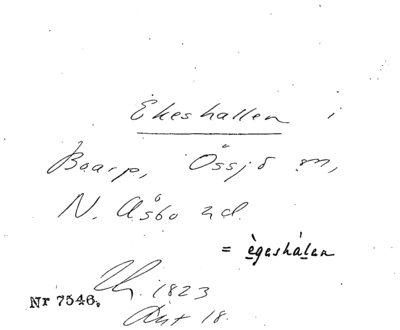 Ekeshallen i
Boarp, Össjö sn,
N. Åsbo hd.
= ègeshálan
Nr 7546.
1823
18.